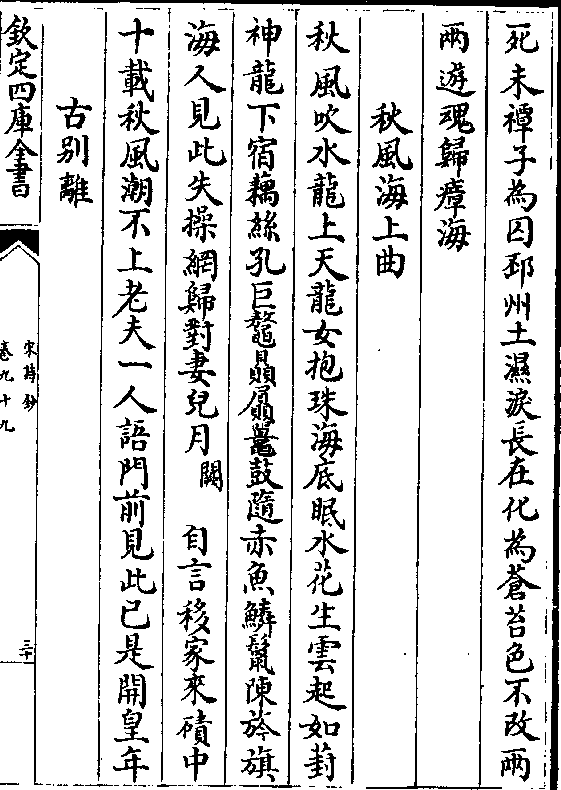 死未禫子為囚邳州土濕淚長在化為蒼苔色不改兩
兩遊魂歸瘴海
秋風海上曲
秋風吹水龍上天龍女抱珠海底眠水花生雲起如葑
神龍下宿藕絲孔巨鼇贔屭鼉鼓隨赤魚鱗鬛陳旂旗
海人見此失操網歸對妻兒月闕　自言移家來磧中
十載秋風潮不上老夫一人語門前見此已是開皇年
古别離
欽定四庫全書
宋詩鈔
卷九十九
三十